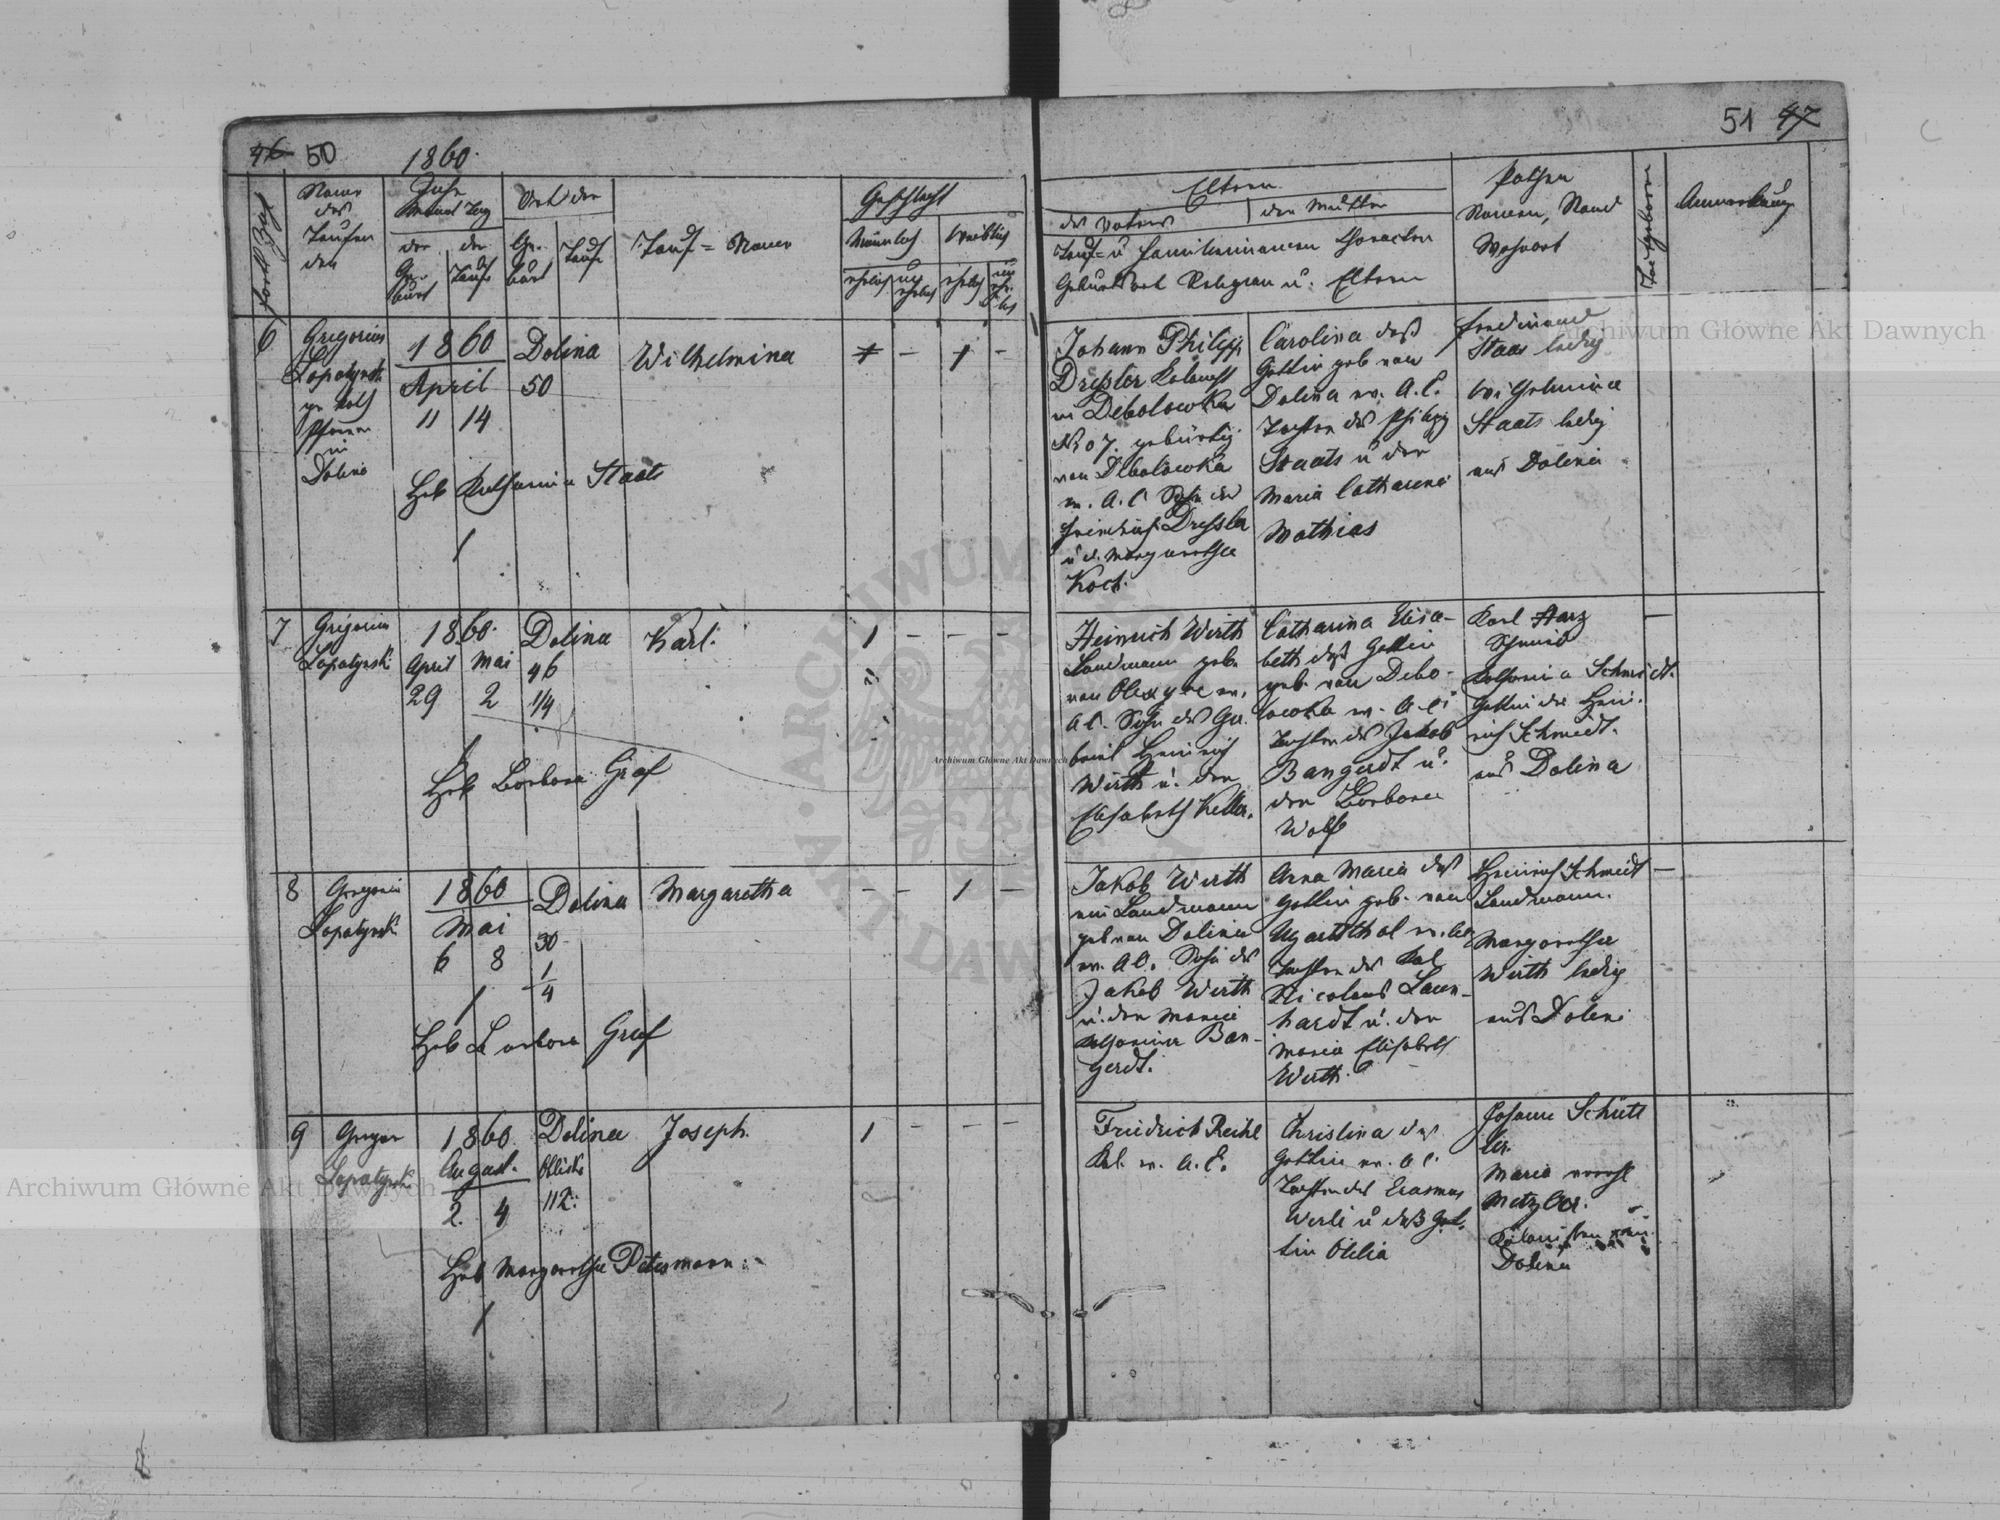 46 50
1860.
Fort Zahl
Name des Taufenden
Jahr Monat Tag
der Geburt
der Taufe
Ort der
Geburt
Taufe
Tauf = Namen
Geschlecht
Männlich
Weiblich
ehelich
unehelich
ehelich
unehelich
51 47
Eltern
des Vaters
der Mutter
Tauf= u Familiennamen Charakter
Geburtsort Religion u. Eltern
Pathen
Namen, Stand
Wohnort
Todtgeboren
Anmerkung
6
Gregorius
Lopatynski
gr. kath
Pfarrer
in
Dolina
1860
April
11 14
Dolina
50
Wilhelmina
1
Heb Katharina Staats
Johann Philipp
Dressler
in Debolowka
No 7. gebürtig
von Debolowka
ev. A. C. Sohn des
Heinrich Dressler
u d. Margaretha
Koch.
Carolina dess
Gattin geb von
Dolina ev. A. C.
Tochter des Philipp
Staats u der
Maria Catharina
Mathias
Ferdinand
Staas ledig
Wilhelmina
Staats ledig
aus Dolina
7
Gregorius
Lopatynski
1860.
April Mai
29 2
Dolina
46
1/4
Karl.
1
Heb Barbara Graf
Heinrich Wirth
Landmann geb.
von ev.
A C. Sohn des
Heinrich
Wirth u. der
Elisabeth Keller.
Catharina Elisa-
beth dess Gattin
geb. von Debo-
lowka ev. A C.
Tochter des Jakob
Bangerdt u.
der Barbara
Wolf
Karl Harz
Schmid
Katharina Schmidt.
Gattin des Hein-
rich Schmidt.
aus Dolina
8
Gregorius
Lopatynski
1860
Mai
6 8
Dolina
30
1
4
Margaretha
1
Heb Barbara Graf
Jakob Wirth
ein Landmann
geb von Dolina
ev. A C. Sohn des
Jakob Wirth
u. der Maria
Katharina Ban-
gerdt.
Anna Maria dess
Gattin geb. von
Ugartsthal
Tochter des Kol
Nicolaus Laen-
hardt u. der
Maria Elisabeth
Wirth.
Heinrich Schmidt
Landmann.
Margaretha
Wirth ledig
aus Dolina
9
Gregor
Lopatynski
1860.
August.
2. 4
Dolina
112.
Joseph.
1
Heb Margaretha Petermann.
Friedrich Reihl
Kol. ev. A. C.
Christina des
Gattin ev. A C.
Tochter des Erasmus
Werli u dess Gat-
tin Otilia
Johann Schütt
ler.
Maria
Metzler.
Kolonisten von
Dolina
Archiwum Główne Akt Dawnych
Archiwum Główne Akt Dawnych
Archiwum Główne Akt Dawnych